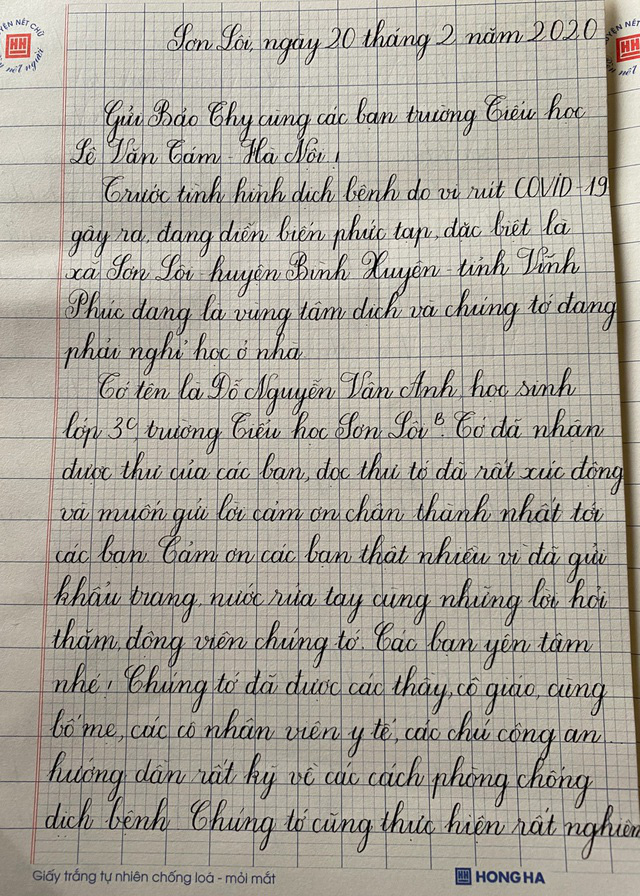 Sơn Lôi, ngày 20 tháng 2 năm 2020
Gửi Bảo Thy cùng các bạn trường Tiểu học
Lê Văn Tám - Hà Nội!
Trước tình hình dịch bệnh do vi rút COVID-19
gây ra, đang diễn biến phức tạp, đặc biệt là
xã Sơn Lôi - huyện Bình Xuyên - tỉnh Vĩnh
Phúc đang là vùng tâm dịch và chúng tớ đang
phải nghỉ học ở nhà
Tớ tên là Đỗ Nguyễn Vân Anh, học sinh
lớp 3C, trường Tiểu học Sơn Lôi B. Tớ đã nhận
được thư của các bạn, đọc thư tớ đã rất xúc động
và muốn gửi lời cảm ơn chân thành nhất tới
các bạn. Cảm ơn các bạn thật nhiều vì đã gửi
khẩu trang, nước rửa tay cùng những lời hỏi
thăm, động viên chúng tớ. Các bạn yên tâm
nhé! Chúng tớ đã được các thầy, cô giáo, cùng
bố mẹ, các cô nhân viên y tế, các chú công an...
hướng dẫn rất kỹ về các cách phòng chống
dịch bệnh. Chúng tớ cũng thực hiện rất nghiêm
Giấy trắng tự nhiên chống loá - mỏi mắt
HH HONG HA